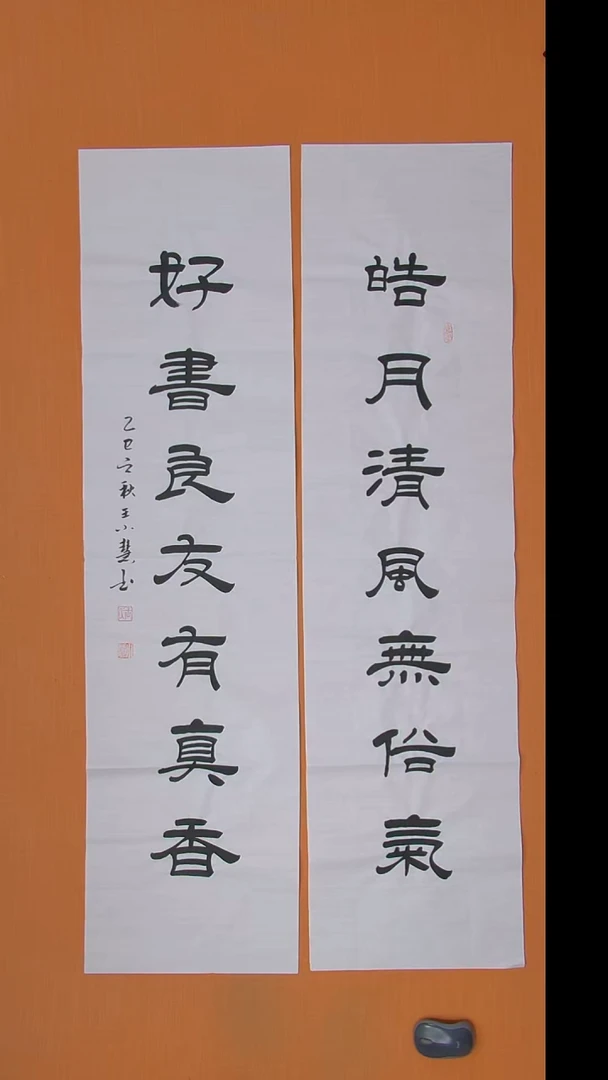 皓月清風無俗氣
好書良友有真香
乙巳之秋王小慧書